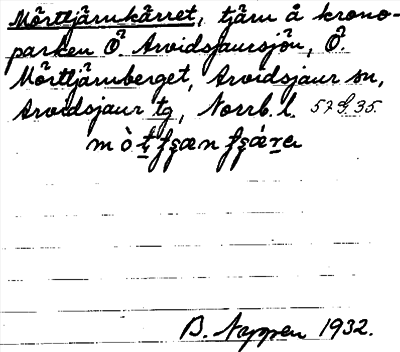 Mörttjärnkärret, tjärn å krono-
parken Ö. Arvidsjaursjön, Ö.
Mörttjärnberget, Arvidsjaur sn,
Arvidsjaur tg, Norrb. l. 579.35.
B. Nappen 1932.